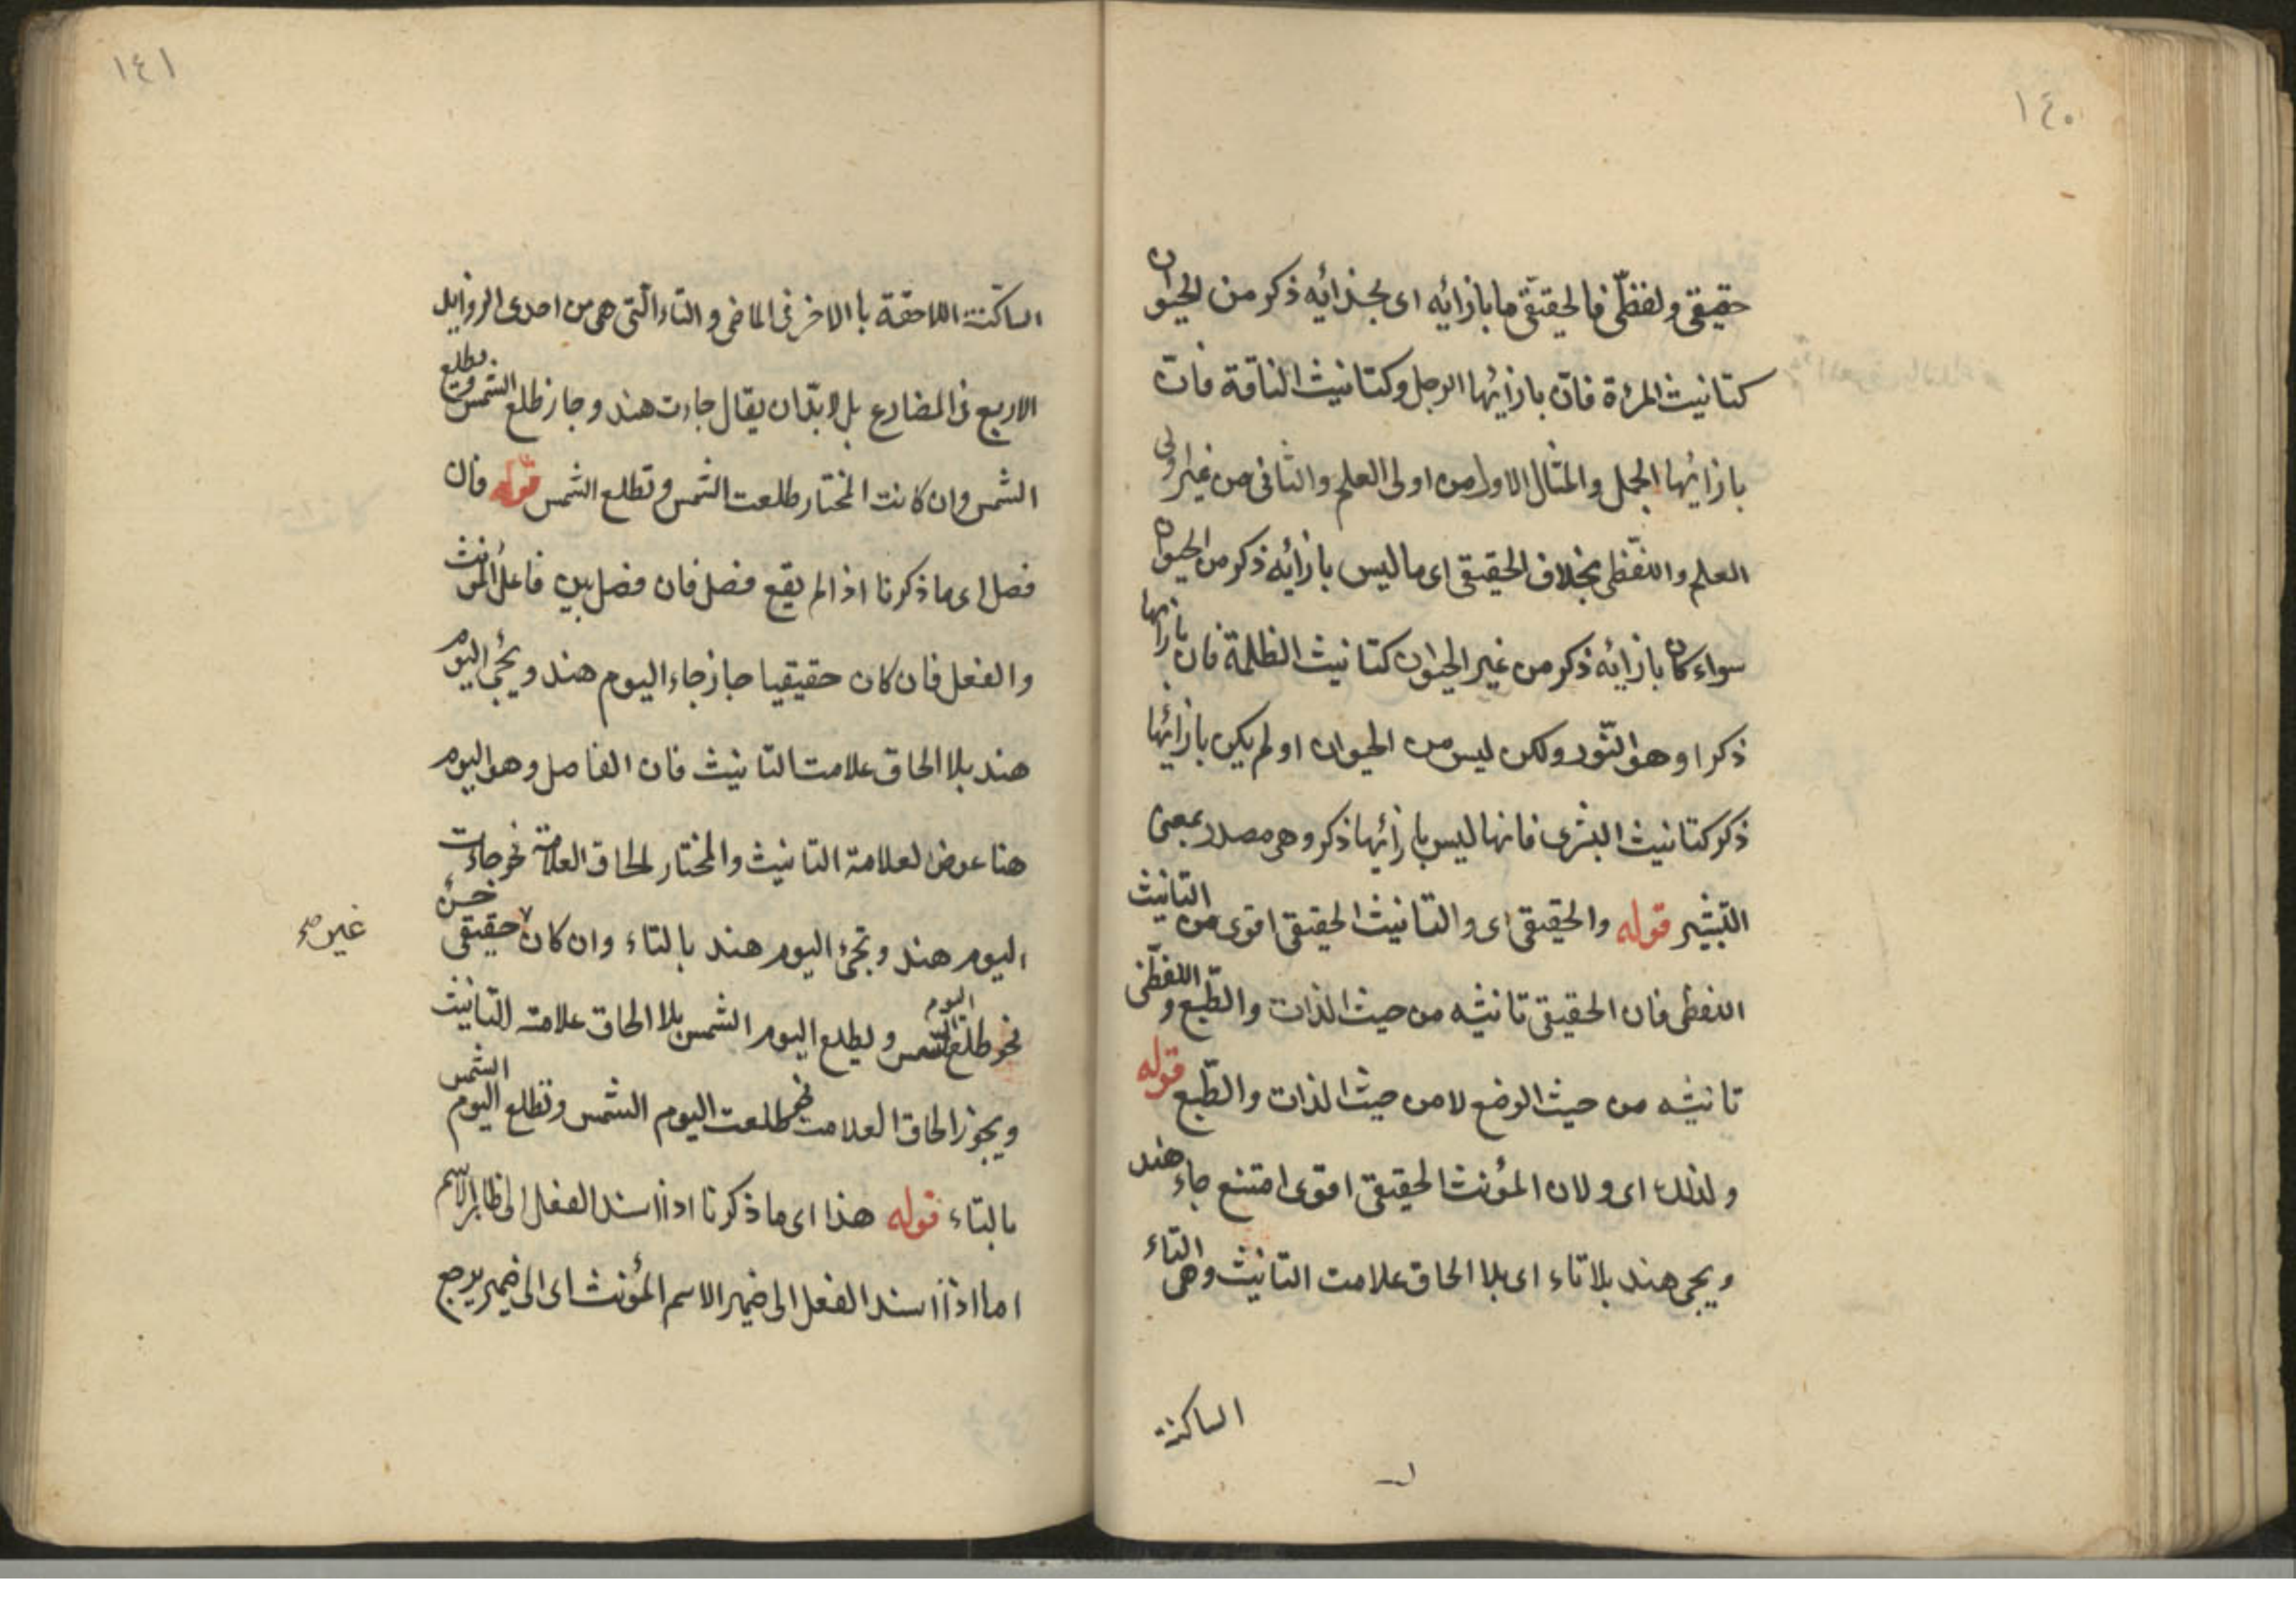 ١٤٠
حقيقى ولفظّى فالحقيقى ما بازائه اى بحذائه ذكر من الحيوان
كتانيث المرءة فانّ بازائها الرجل وكتانيث الناقة فانّ
بازائها الجمل والمثال الاول من اولى العلم والثانى من غير اولى
العلم واللفّظى بخلاف الحقيقى اى ما ليس بازائه ذكر من الحيوان
سواء كان بازائه ذكر من غير الحيوان كتانيث الظلمة فان بازائها
ذكرا وهو النّور ولكن ليس من الحيوان او لم يكن بازائها
ذكر كتانيث البشرى فانها ليس بازائها ذكر وهى مصدر بمعنى
التبشير قوله والحقيقى اى والتانيث الحقيقى اقوى من التانيث
اللفظى فان الحقيقى تانيثه من حيث الذات والطّبع واللفظّى
تانيثه من حيث الوضع لا من حيث الذات والطّبع قوله
ولذلك اى ولان المؤنث الحقيقى اقوى امتنع جاء هند
ويجى هند بلا تاء اى بلا الحاق علامت التانيث وهى التاء
الساكنة
١٤١
الساكنة اللاحقة با الاخر فى الماضى والتاء الّتى هى من احدى الزوايل
الاربع فى المضارع بل لا بدّ ان يقال جاءت هند وجاز طلع الشمس ويطلع
الشمس وان كانت المختار طلعت الشمس وتطلع الشمس قوله فان
فصل اى ما ذكرنا اذا لم يقع فصل فان فصل بين فاعل المؤنث
والفعل فان كان حقيقيا جاز جاء اليوم هند ويجئ اليوم
هند بلا الحاق علامت التانيث فان الفاصل وهو اليوم
هنا عوض لعلامة التانيث والمختار لحاق العلامة نحو جاءت
اليوم هند وتجئ اليوم هند بالتاء وان كان حقيقى حسن
غير صح
نحو طلع اليوم الشمس ويطلع اليوم الشمس بلا الحاق علامته التانيث
ويجوز الحاق العلامت نحو طلعت اليوم الشمس وتطلع اليوم الشمس
بالتاء قوله هذا اى ما ذكرنا اذا اسند الفعل الى ظاهر الاسم
اما اذا اسند الفعل الى ضمير الاسم المؤنث اى الى ضمير يرجع